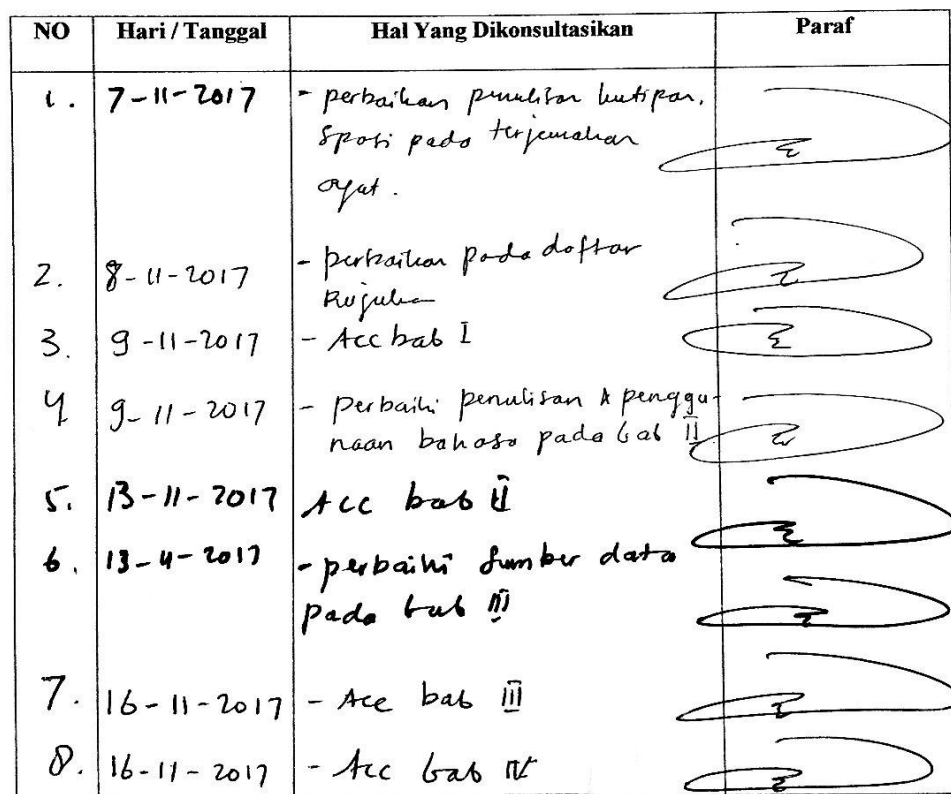 NO Hari / Tanggal Hal Yang Dikonsultasikan Paraf
1. 7-11-2017 - perbaikan penulisan kutipan,
Spasi pada terjemahan
ayat.
2. 8-11-2017 - perbaikan pada daftar
Rujukan
3. 9-11-2017 - Acc bab I
4 9-11-2017 - perbaiki penulisan & penggu-
naan bahasa pada bab II
5. 13-11-2017 Acc bab II
6. 13-11-2017 - perbaiki Sumber data
pada bab III
7. 16-11-2017 - Acc bab III
8. 16-11-2017 - Acc bab IV